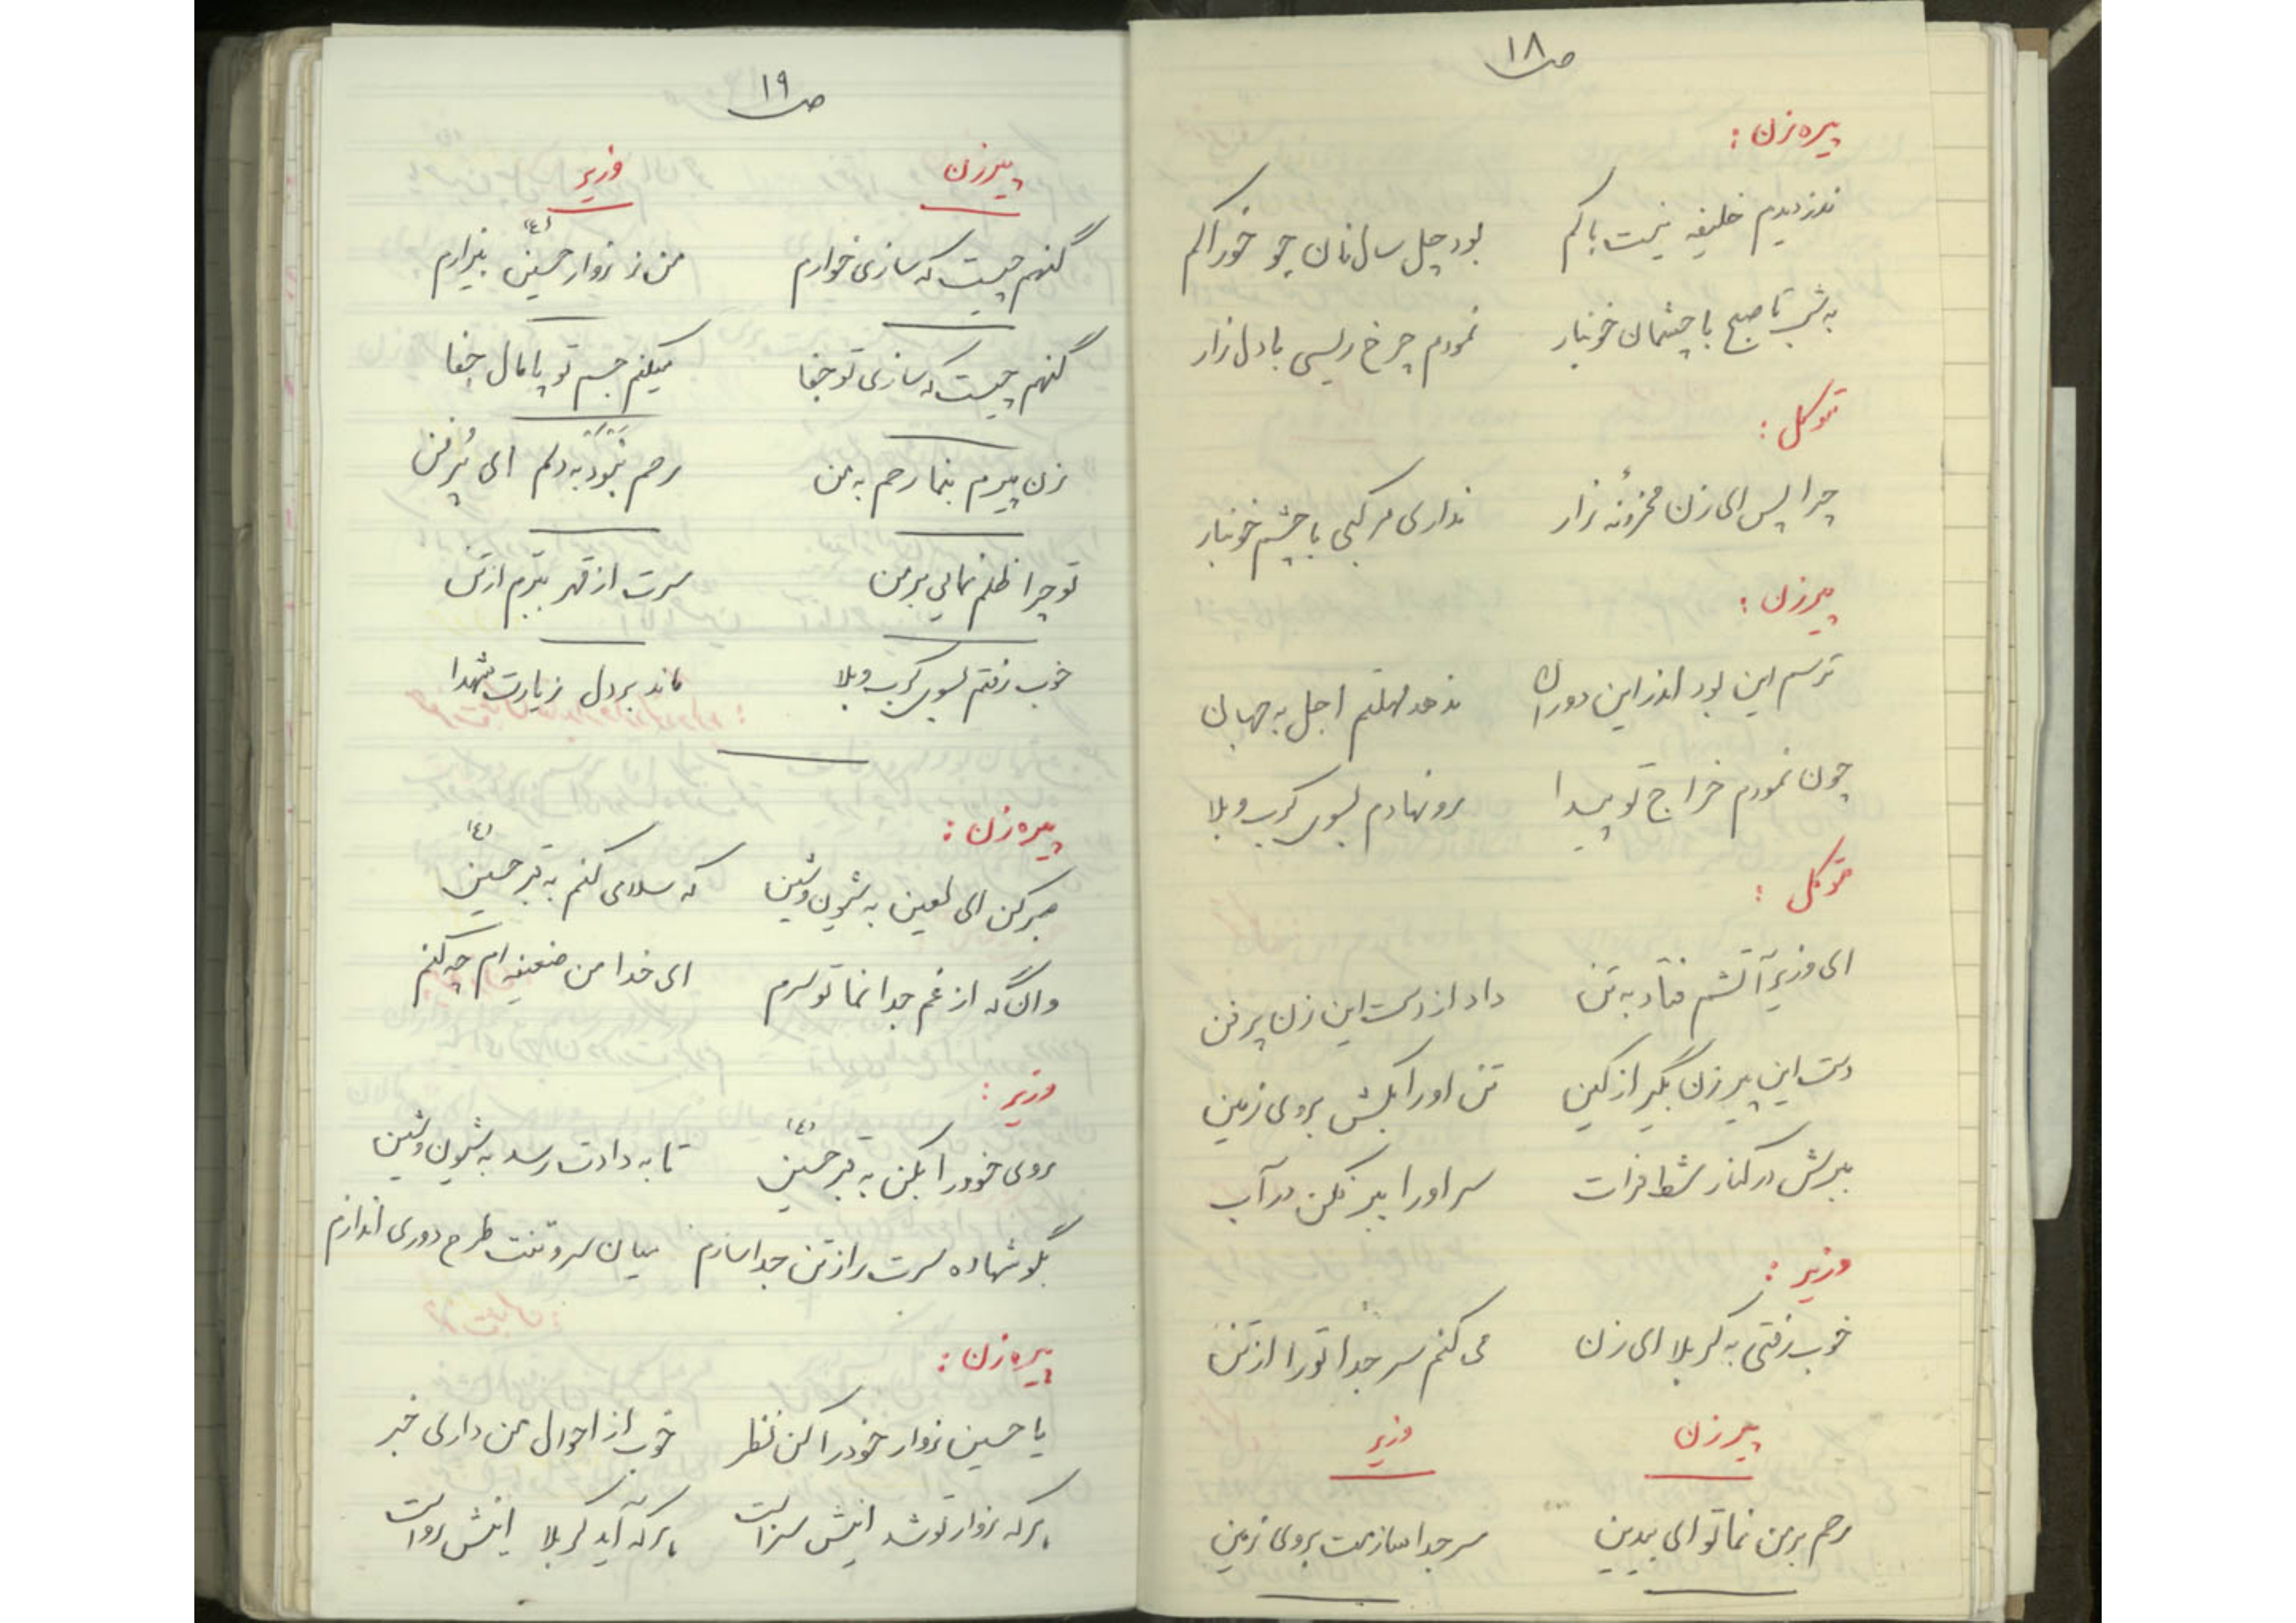 ص ۱۸
پیره زن :
ندزدیدم خلیفه نیست باکم بود چل سال نان جو خوراکم
به شب تا صبح با چشمان خونبار نمودم چرخ ریسی با دل زار
متوکل :
چرا پس ای زن محزونهٔ زار نداری مرکبی با چشم خونبار
پیرزن :
ترسم این بود اندر این دوران ندهد مهلتم اجل به جهان
چون نمودم خراج تو پیدا رو نهادم بسوی کرب و بلا
متوکل :
ای وزیر آتشم فتاد به تن داد از دست این زن پر فن
دست این پیر زن بگیر از کین تن او را بکش بروی زمین
ببرش در کنار شط فرات سر او را ببر فکن در آب
وزیر :
خوب رفتی به کربلا ای زن می کنم سر جدا تو را از تن
پیرزن وزیر
رحم بر من نما تو ای بیدین سر جدا سازمت بروی زمین
ص ۱۹
پیرزن وزیر
گنهم چیست که سازی خوارم من ز زوار حسین (ع) بیزارم
گنهم چیست که سازی تو جفا میکنم جسم تو پامال جفا
زن پیرم بنما رحم به من رحم نبود به دلم ای پُر فن
تو چرا ظلم نمایی بر من سرت از قهر ببرم از تن
خوب رفتم بسوی کرب و بلا ماند بر دل زیارت شهدا
پیره زن :
صبر کن ای لعین به شیون و شین که سلامی کنم به قبر حسین (ع)
وانگه از غم جدا نما تو سرم ای خدا من ضعیفه ام چه کنم
وزیر :
روی خود را بکن به قبر حسین (ع) تا به دادت رسد به شیون و شین
بگو شهاده سرت را ز تن جدا سازم میان سر و تنت طرح دوری اندازم
پیره زن :
یا حسین زوار خود را کن نظر خوب از احوال من داری خبر
هر که زوار تو شد اینش سزاست هر که آید کربلا اینش رواست